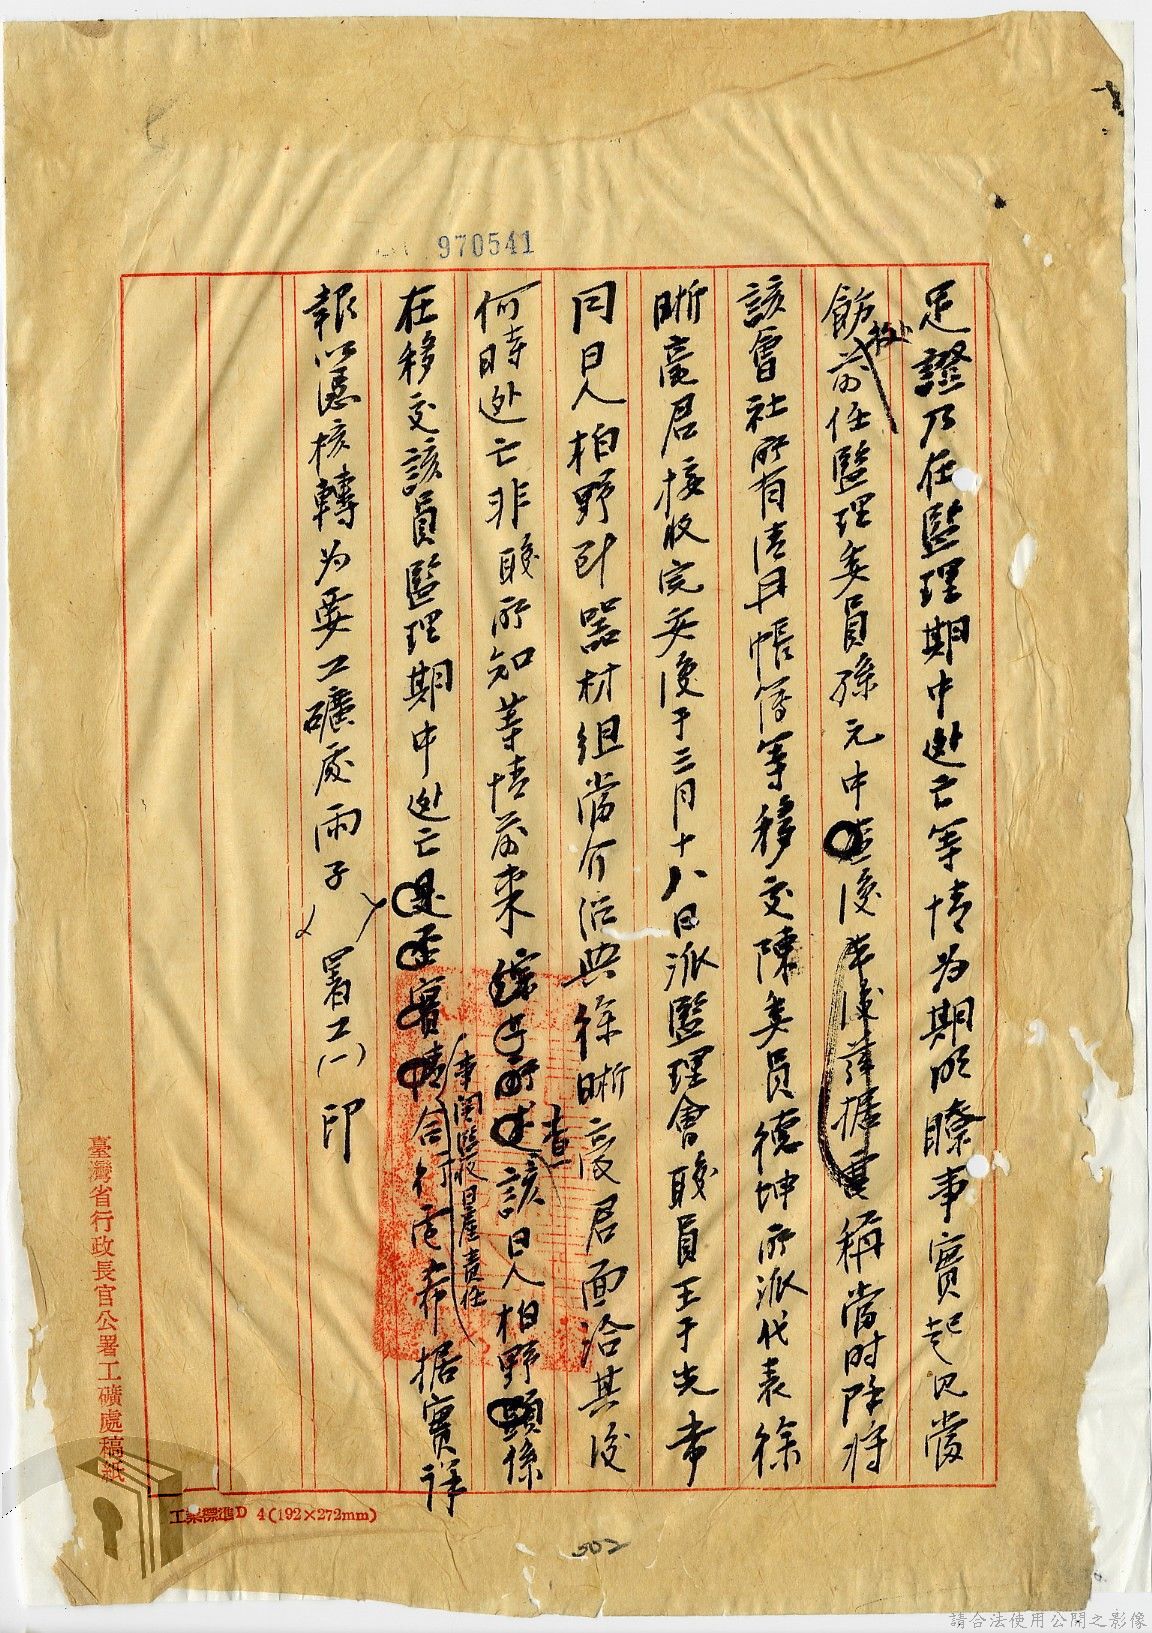 970541
足證乃在監理期中逃亡等情為期明瞭事實起見當
飭前任監理委員孫元中 後 據 稱當時除將
該會社所有清冊帳簿等移交陳委員德坤所派代表徐
晰高君接收完竣後于三月十八日派監理會職員王于光帶
同日人柏野到器材組當介紹與徐晰高君面洽其後
何時逃亡非職所知等情前來 查該日人柏野顯係
在移交該員監理期中逃亡 事關監收日產責任 合行電希據實詳
報以憑核轉為要工礦處雨子 署工(一)印
臺灣省行政長官公署工礦處稿紙
工業標準D 4(192×272mm)
502
請合法使用公開之影像